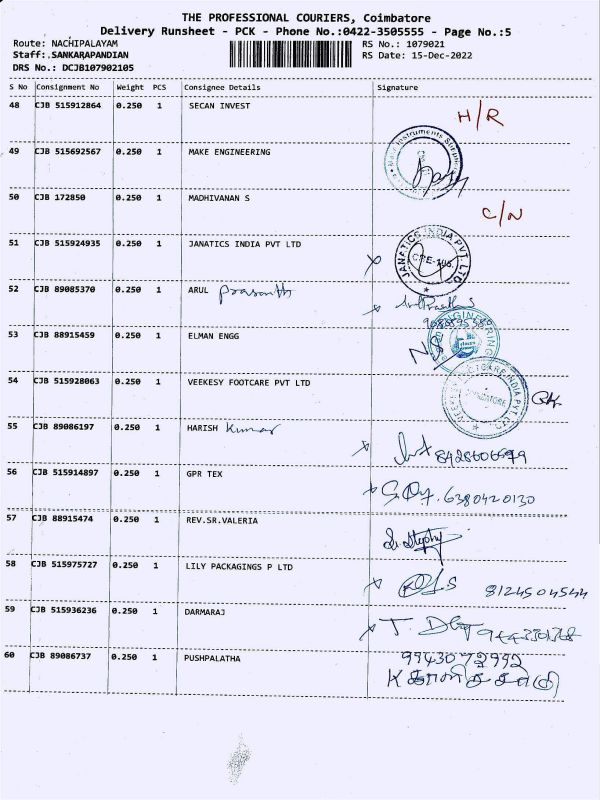 THE PROFESSIONAL COURIERS, Coimbatore
Delivery Runsheet - PCK - Phone No.:0422-3505555 - Page No.:5
Route: NACHIPALAYAM RS No.: 1079021
Staff:.SANKARAPANDIAN RS Date: 15-Dec-2022
DRS No.: DCJB107902105
S No Consignment No Weight PCS Consignee Details Signature
48 CJB 515912864 0.250 1 SECAN INVEST H/R
49 CJB 515692567 0.250 1 MAKE ENGINEERING
50 CJB 172850 0.250 1 MADHIVANAN S C/N
51 CJB 515924935 0.250 1 JANATICS INDIA PVT LTD JANATICS INDIA PVT. LTD.
52 CJB 89085370 0.250 1 ARUL Prasanth
53 CJB 88915459 0.250 1 ELMAN ENGG
54 CJB 515928063 0.250 1 VEEKESY FOOTCARE PVT LTD
55 CJB 89086197 0.250 1 HARISH Kumar
56 CJB 515914897 0.250 1 GPR TEX 6380420130
57 CJB 88915474 0.250 1 REV.SR.VALERIA
58 CJB 515975727 0.250 1 LILY PACKAGINGS P LTD 8124504544
59 CJB 515936236 0.250 1 DARMARAJ
60 CJB 89086737 0.250 1 PUSHPALATHA 9943072992